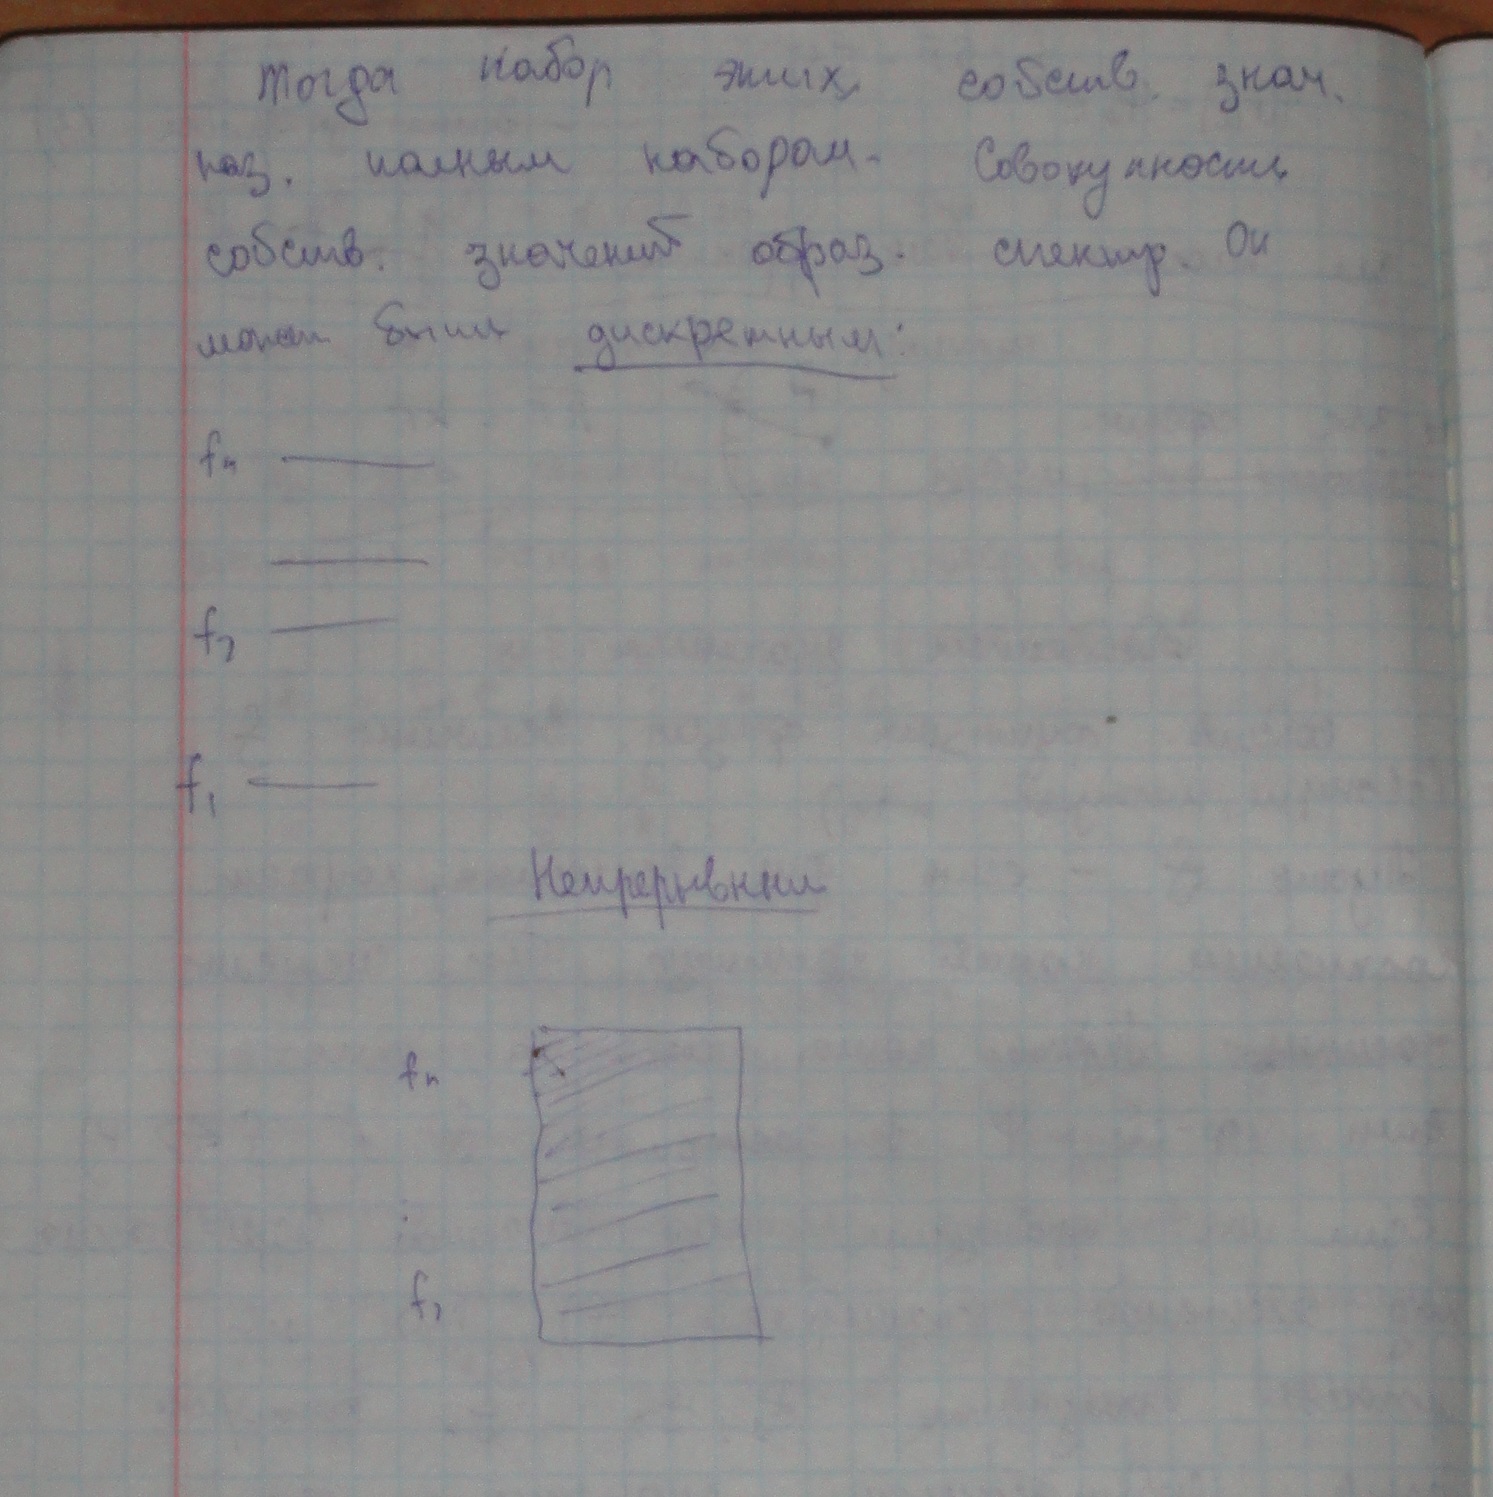 Тогда набор этих собств. знач.
наз. полным набором. Совокупность
собств. значений образ. спектр. Он
может быть дискретным:
fₙ
f₂
f₁
Непрерывным
fₙ
f₁